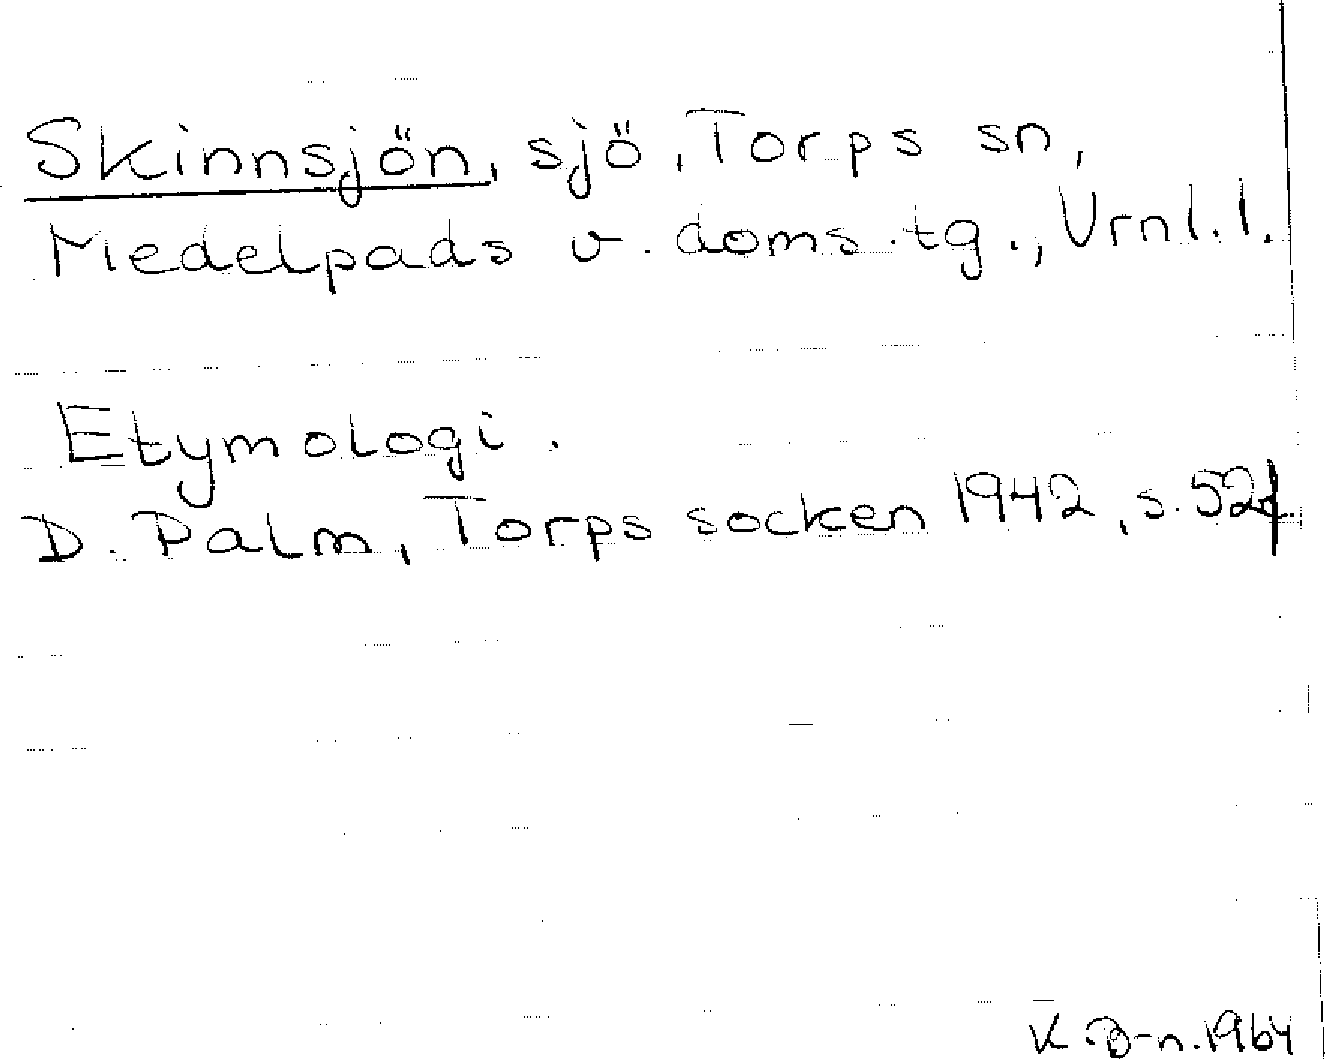 Skinnsjön, sjö, Torps sn,
Medelpads v. doms.tg., Vrnl.l.
Etymologi.
D. Palm, Torps socken 1942, s. 52f.
K.D-n. 1964